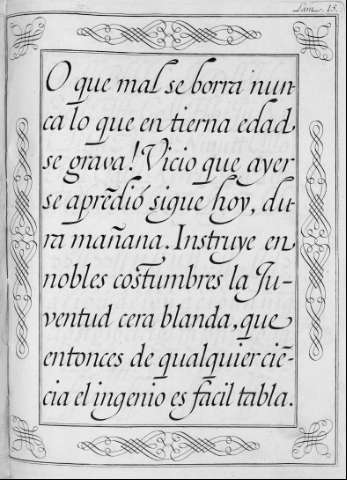 Lam. 13.
O que mal se borra nun-
ca lo que en tierna edad
se grava! Vicio que ayer
se aprẽdió sigue hoy, du-
ra mañana. Instruye en
nobles costumbres la Ju-
ventud cera blanda, que
entonces de qualquier ciẽ-
cia el ingenio es fácil tabla.